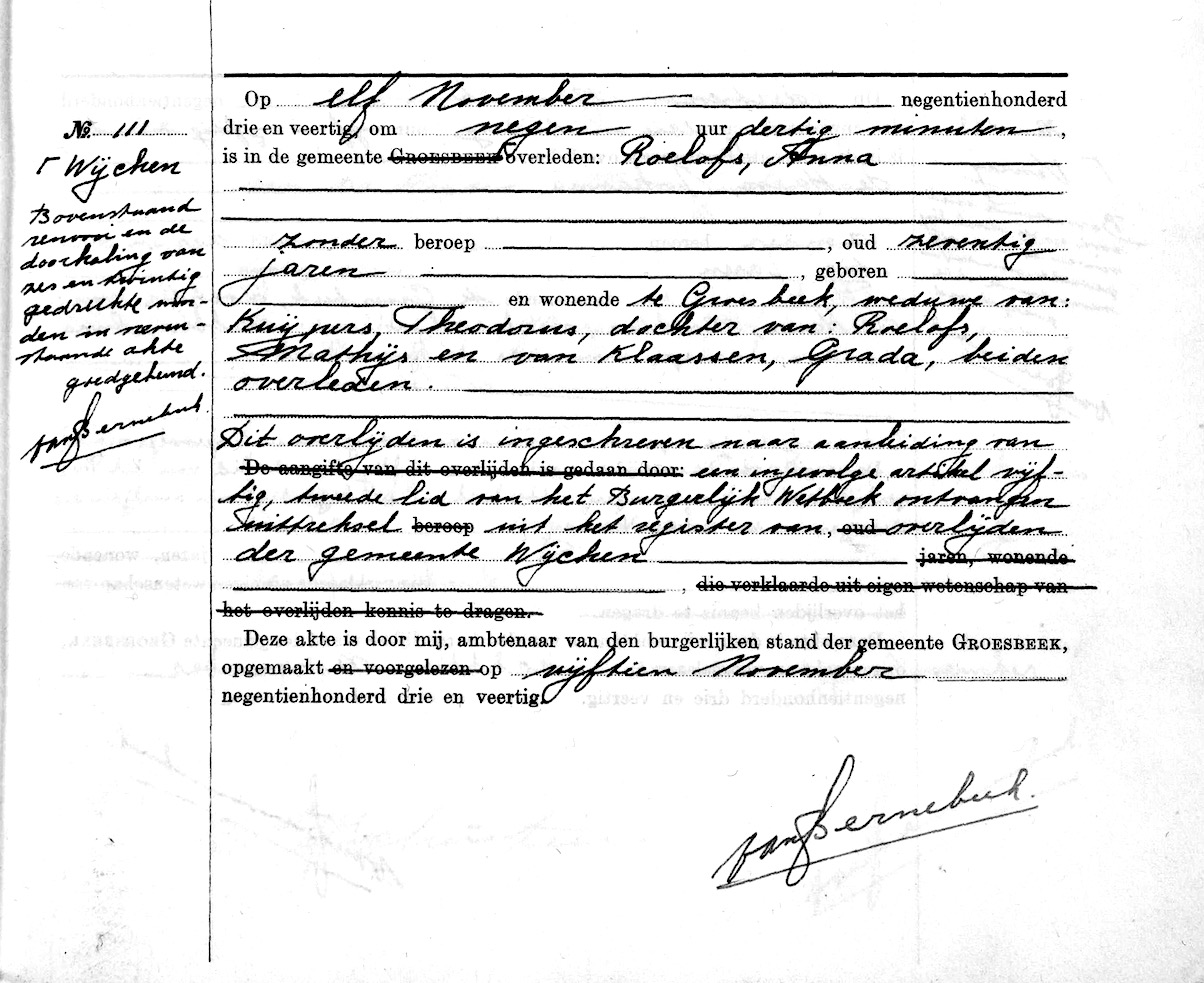 № 111
Γ Wijchen
Bovenstaand
renvooi en de
doorhaling van
zes en twintig
gedrukte woor-
den in neven-
staande akte
goedgekeurd.
van Bernebeek.
Op elf November negentienhonderd
drie en veertig, om negen uur dertig minuten,
is in de gemeente GROESBEEK Γ overleden: Roelofs, Anna
zonder beroep , oud zeventig
jaren , geboren
en wonende te Groesbeek, weduwe van:
Kuijpers, Theodorus, dochter van: Roelofs,
Mathijs en van Klaassen, Grada, beiden
overleden.
Dit overlijden is ingeschreven naar aanleiding van
De aangifte van dit overlijden is gedaan door: een ingevolge artikel vijf-
tig, tweede lid van het Burgerlijk Wetboek ontvangen
uittreksel beroep uit het register van, oud overlijden
der gemeente Wijchen jaren, wonende
, die verklaarde uit eigen wetenschap van
het overlijden kennis te dragen.
Deze akte is door mij, ambtenaar van den burgerlijken stand der gemeente GROESBEEK,
opgemaakt en voorgelezen op vijftien November
negentienhonderd drie en veertig.
van Bernebeek.